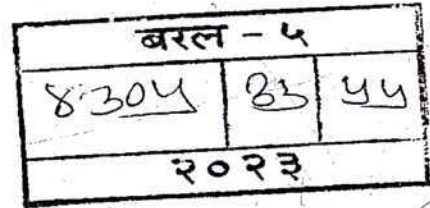 बरल - ५
४३०५ ३३ ५५
२०२३